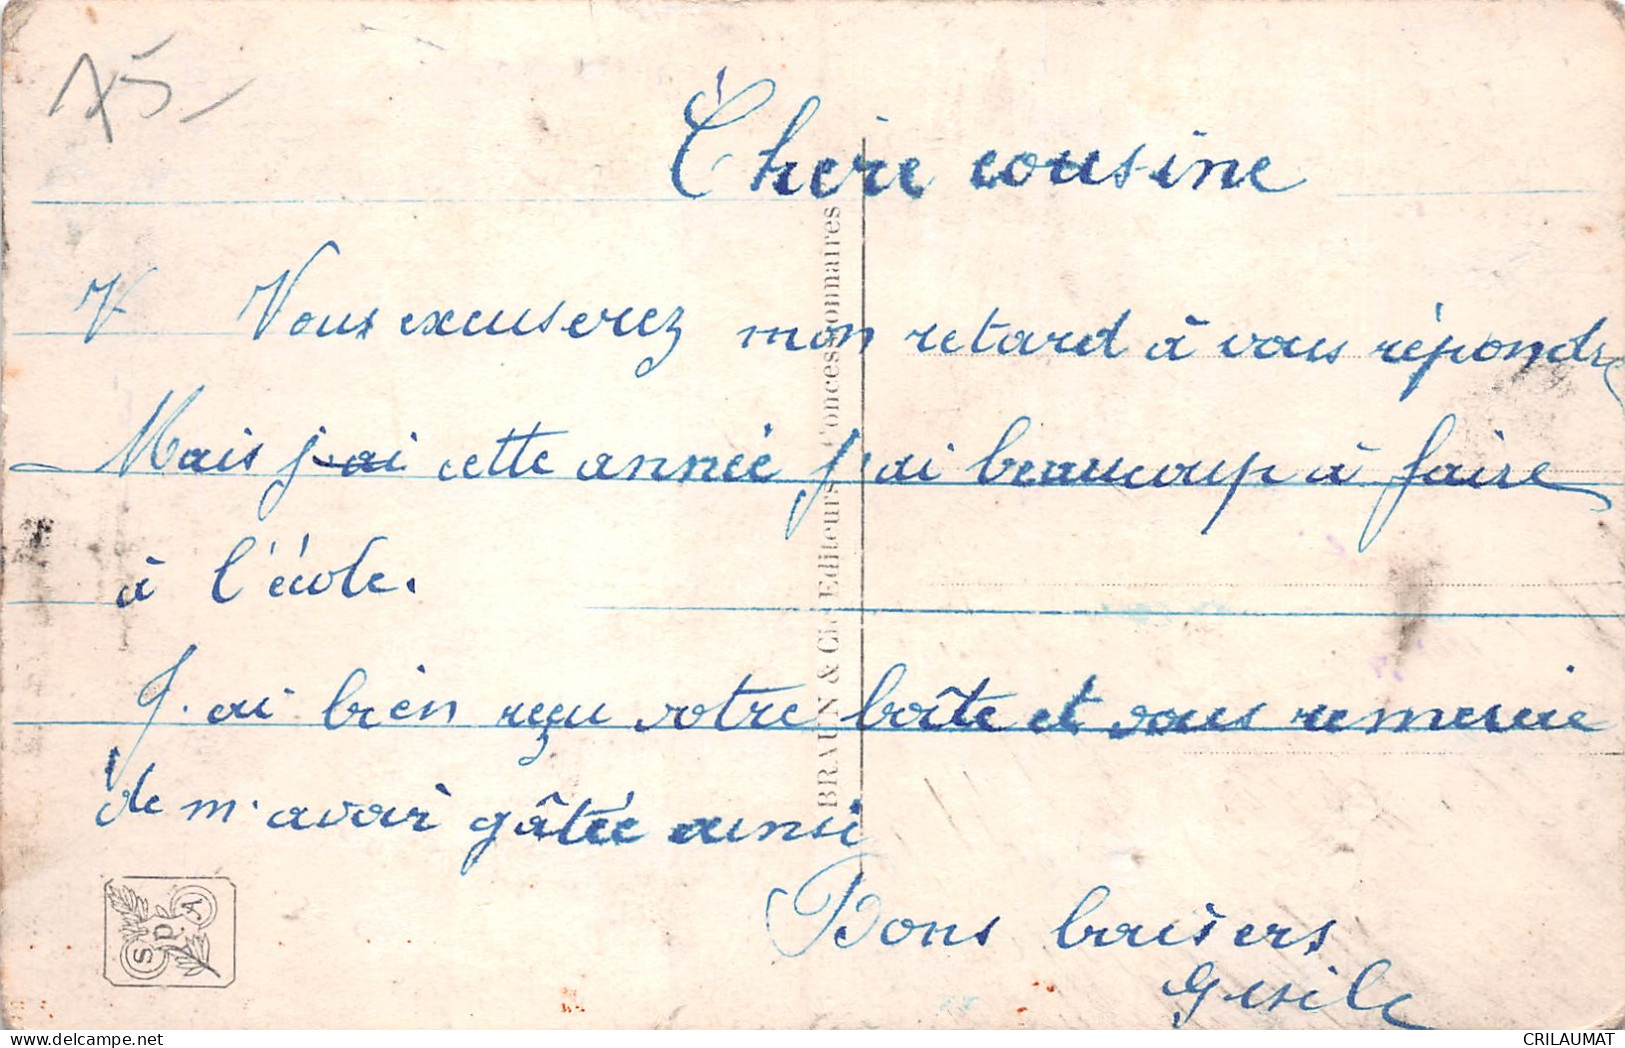 75-
Chère cousine
V Vous excuserez mon retard à vous répondre
Mais j'ai cette année j'ai beaucoup à faire
à l'école.
J'ai bien reçu votre boîte et vous remercie
de m'avoir gâtée ainsi
Bons baisers
BRAUN & Cie Editeurs Concessionnaires
SPA
CRILAUMAT